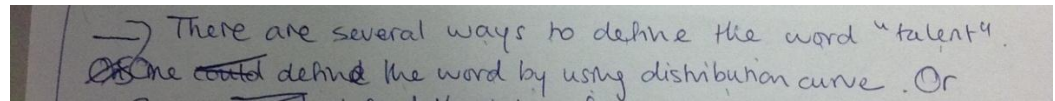 There are several ways to define the word "talent".
One could define the word by using distribution curve. Or